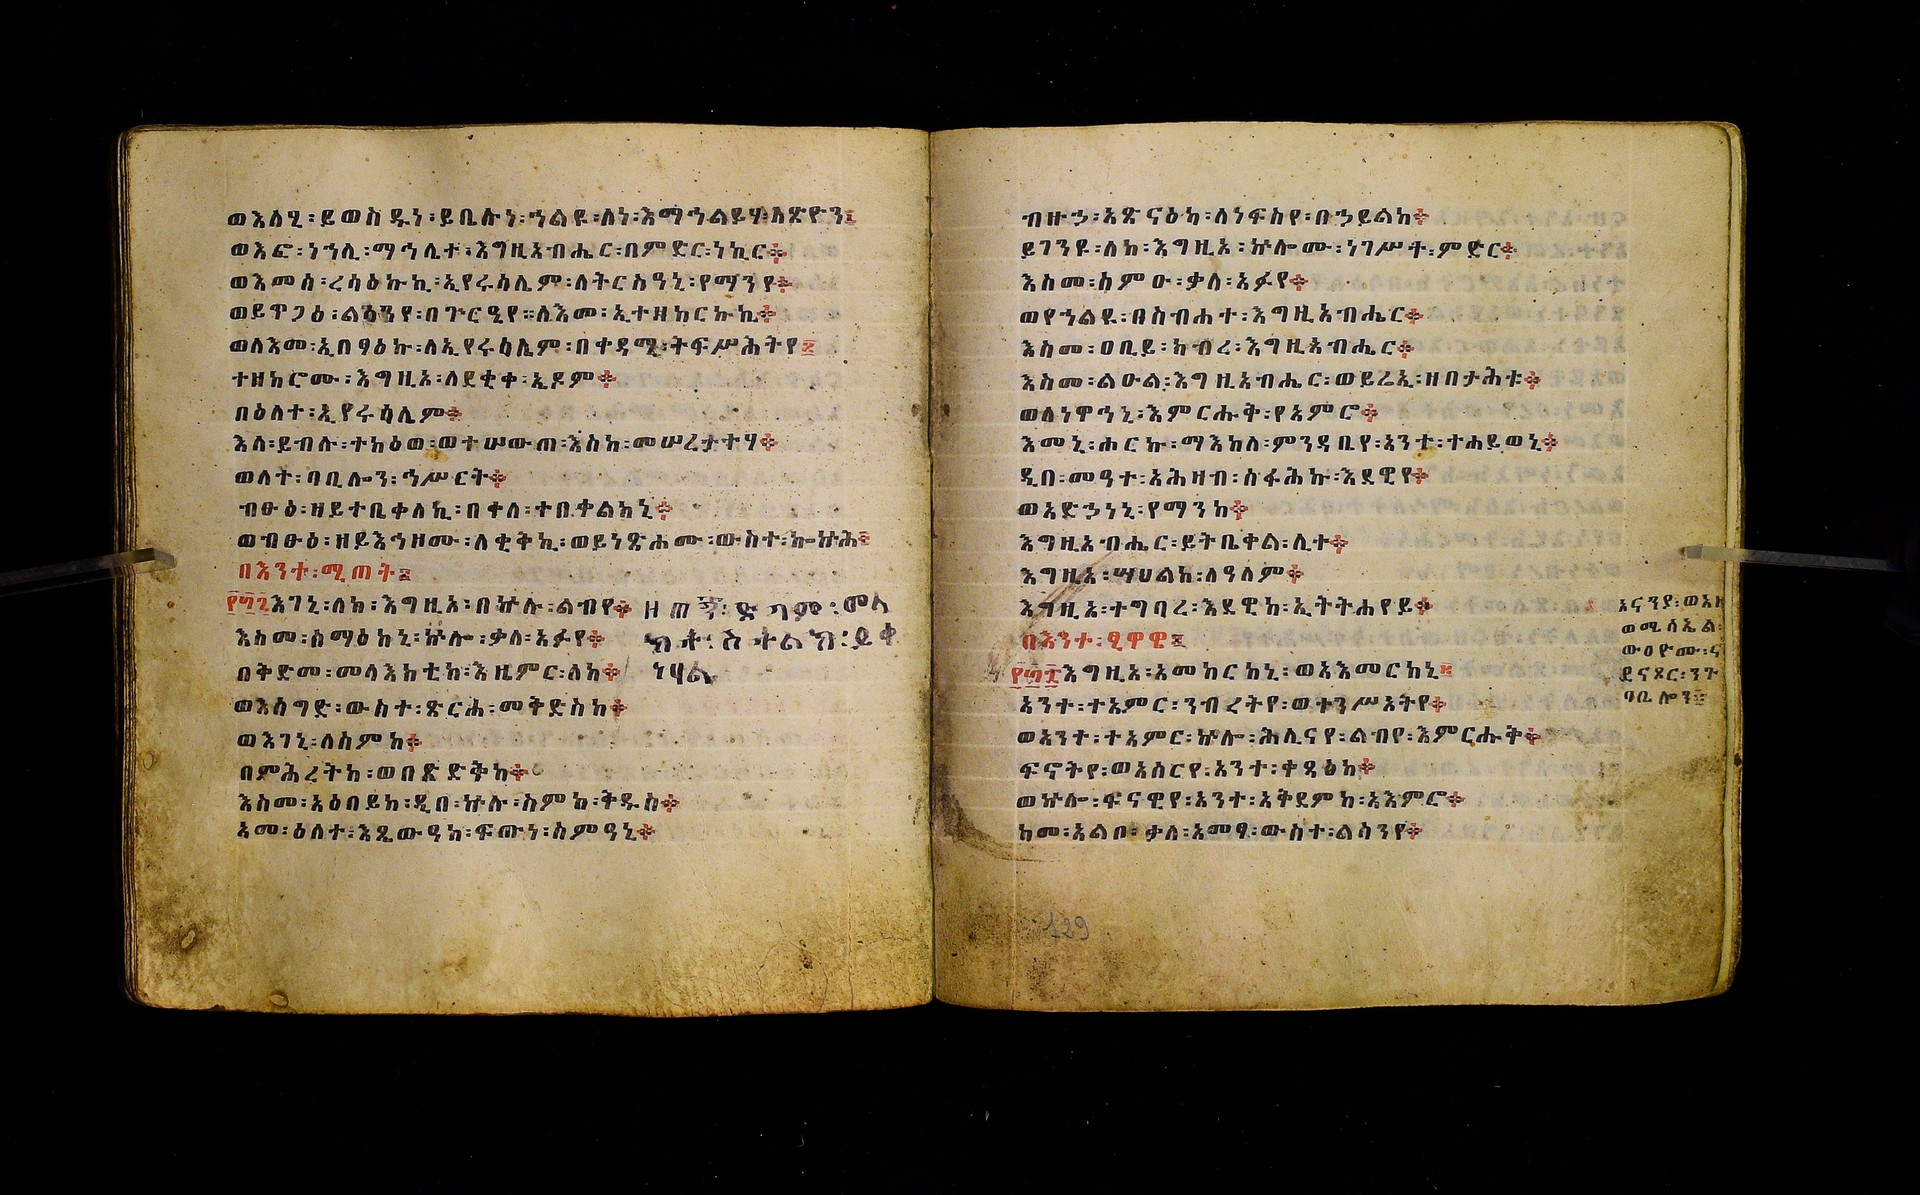 ወእለሂ፡ይወስዱነ፡ይቤሉነ፡ኀልዩ፡ለነ፡እማኅልይሃ፡ለጽዮን፤
ወእፎ፡ነኀሊ፡ማኅሊተ፡እግዚአብሔር፡በምድር፡ነኪር፨
ወእመሰ፡ረሳዕኩኪ፡ኢየሩሳሊም፡ለትርስዓኒ፡የማንየ፨
ወይጥጋዕ፡ልሳንየ፡በጕርዔየ፡ለእመ፡ኢተዘከርኩኪ፨
ወለእመ፡ኢበፃዕኩ፡ለኢየሩሳሊም፡በቀዳሚ፡ትፍሥሕትየ፤
ተዘከሮሙ፡እግዚአ፡ለደቂቀ፡ኢዶም፨
በዕለተ፡ኢየሩሳሊም፨
እለ፡ይብሉ፡ተከዕወ፡ወተሠውጠ፡እስከ፡መሠረታተሃ፨
ወለት፡ባቢሎን፡ኅሥርት፨
ብፁዕ፡ዘይተቤቀለኪ፡በቀለ፡ተበቀልከኒ፨
ወብፁዕ፡ዘይእኅዞሙ፡ለቂቅኪ፡ወይነጽሖሙ፡ውስተ፡ኰኵሕ፨
በእንተ፡ሚጠት፤
፻፴፯እገኒ፡ለከ፡እግዚአ፡በኵሉ፡ልብየ፨
እስመ፡ሰማዕከኒ፡ኵሎ፡ቃለ፡አፉየ፨
በቅድመ፡መላእክቲከ፡እዚምር፡ለከ፨
ወእሰግድ፡ውስተ፡ጽርሐ፡መቅድስከ፨
ወእገኒ፡ለስምከ፨
በምሕረትከ፡ወበጽድቅከ፨
እስመ፡አዕበይከ፡ዲበ፡ኵሉ፡ስምከ፡ቅዱስ፨
አመ፡ዕለተ፡እጼውዓከ፡ፍጡነ፡ስምዓኒ፨
ብዙኃ፡አጽናዕከ፡ለነፍስየ፡በኃይልከ፨
ይገንዩ፡ለከ፡እግዚአ፡ኵሎሙ፡ነገሥተ፡ምድር፨
እስመ፡ሰምዑ፡ቃለ፡አፉየ፨
ወየኀልዩ፡በስብሐተ፡እግዚአብሔር፨
እስመ፡ዐቢይ፡ክብረ፡እግዚአብሔር፨
እስመ፡ልዑል፡እግዚአብሔር፡ወይሬኢ፡ዘበታሕቱ፨
ወለነዋኅኒ፡እምርሑቅ፡የአምሮ፨
እመኒ፡ሐርኩ፡ማእከለ፡ምንዳቤየ፡አንተ፡ተሐይወኒ፨
ዲበ፡መዓተ፡አሕዛብ፡ሰፋሕኩ፡እደዊየ፨
ወአድኃነኒ፡የማንከ፨
እግዚአብሔር፡ይትቤቀል፡ሊተ፨
እግዚአ፡ሣህልከ፡ለዓለም፨
እግዚአ፡ተግባረ፡እደዊከ፡ኢትትሐየይ፨
በእንተ፡ፂዋዌ፤
፻፴፰እግዚአ፡አመከርከኒ፡ወአእመርከኒ፤
አንተ፡ተአምር፡ንብረትየ፡ወተንሥአትየ፨
ወአንተ፡ተአምር፡ኵሎ፡ሕሊናየ፡ልብየ፡እምርሑቅ፨
ፍኖትየ፡ወአሰርየ፡አንተ፡ቀጻዕከ፨
ወኵሎ፡ፍናዊየ፡አንተ፡አቅደምከ፡አእምሮ፨
ከመ፡አልቦ፡ቃለ፡አመፃ፡ውስተ፡ልሳንየ፨
129